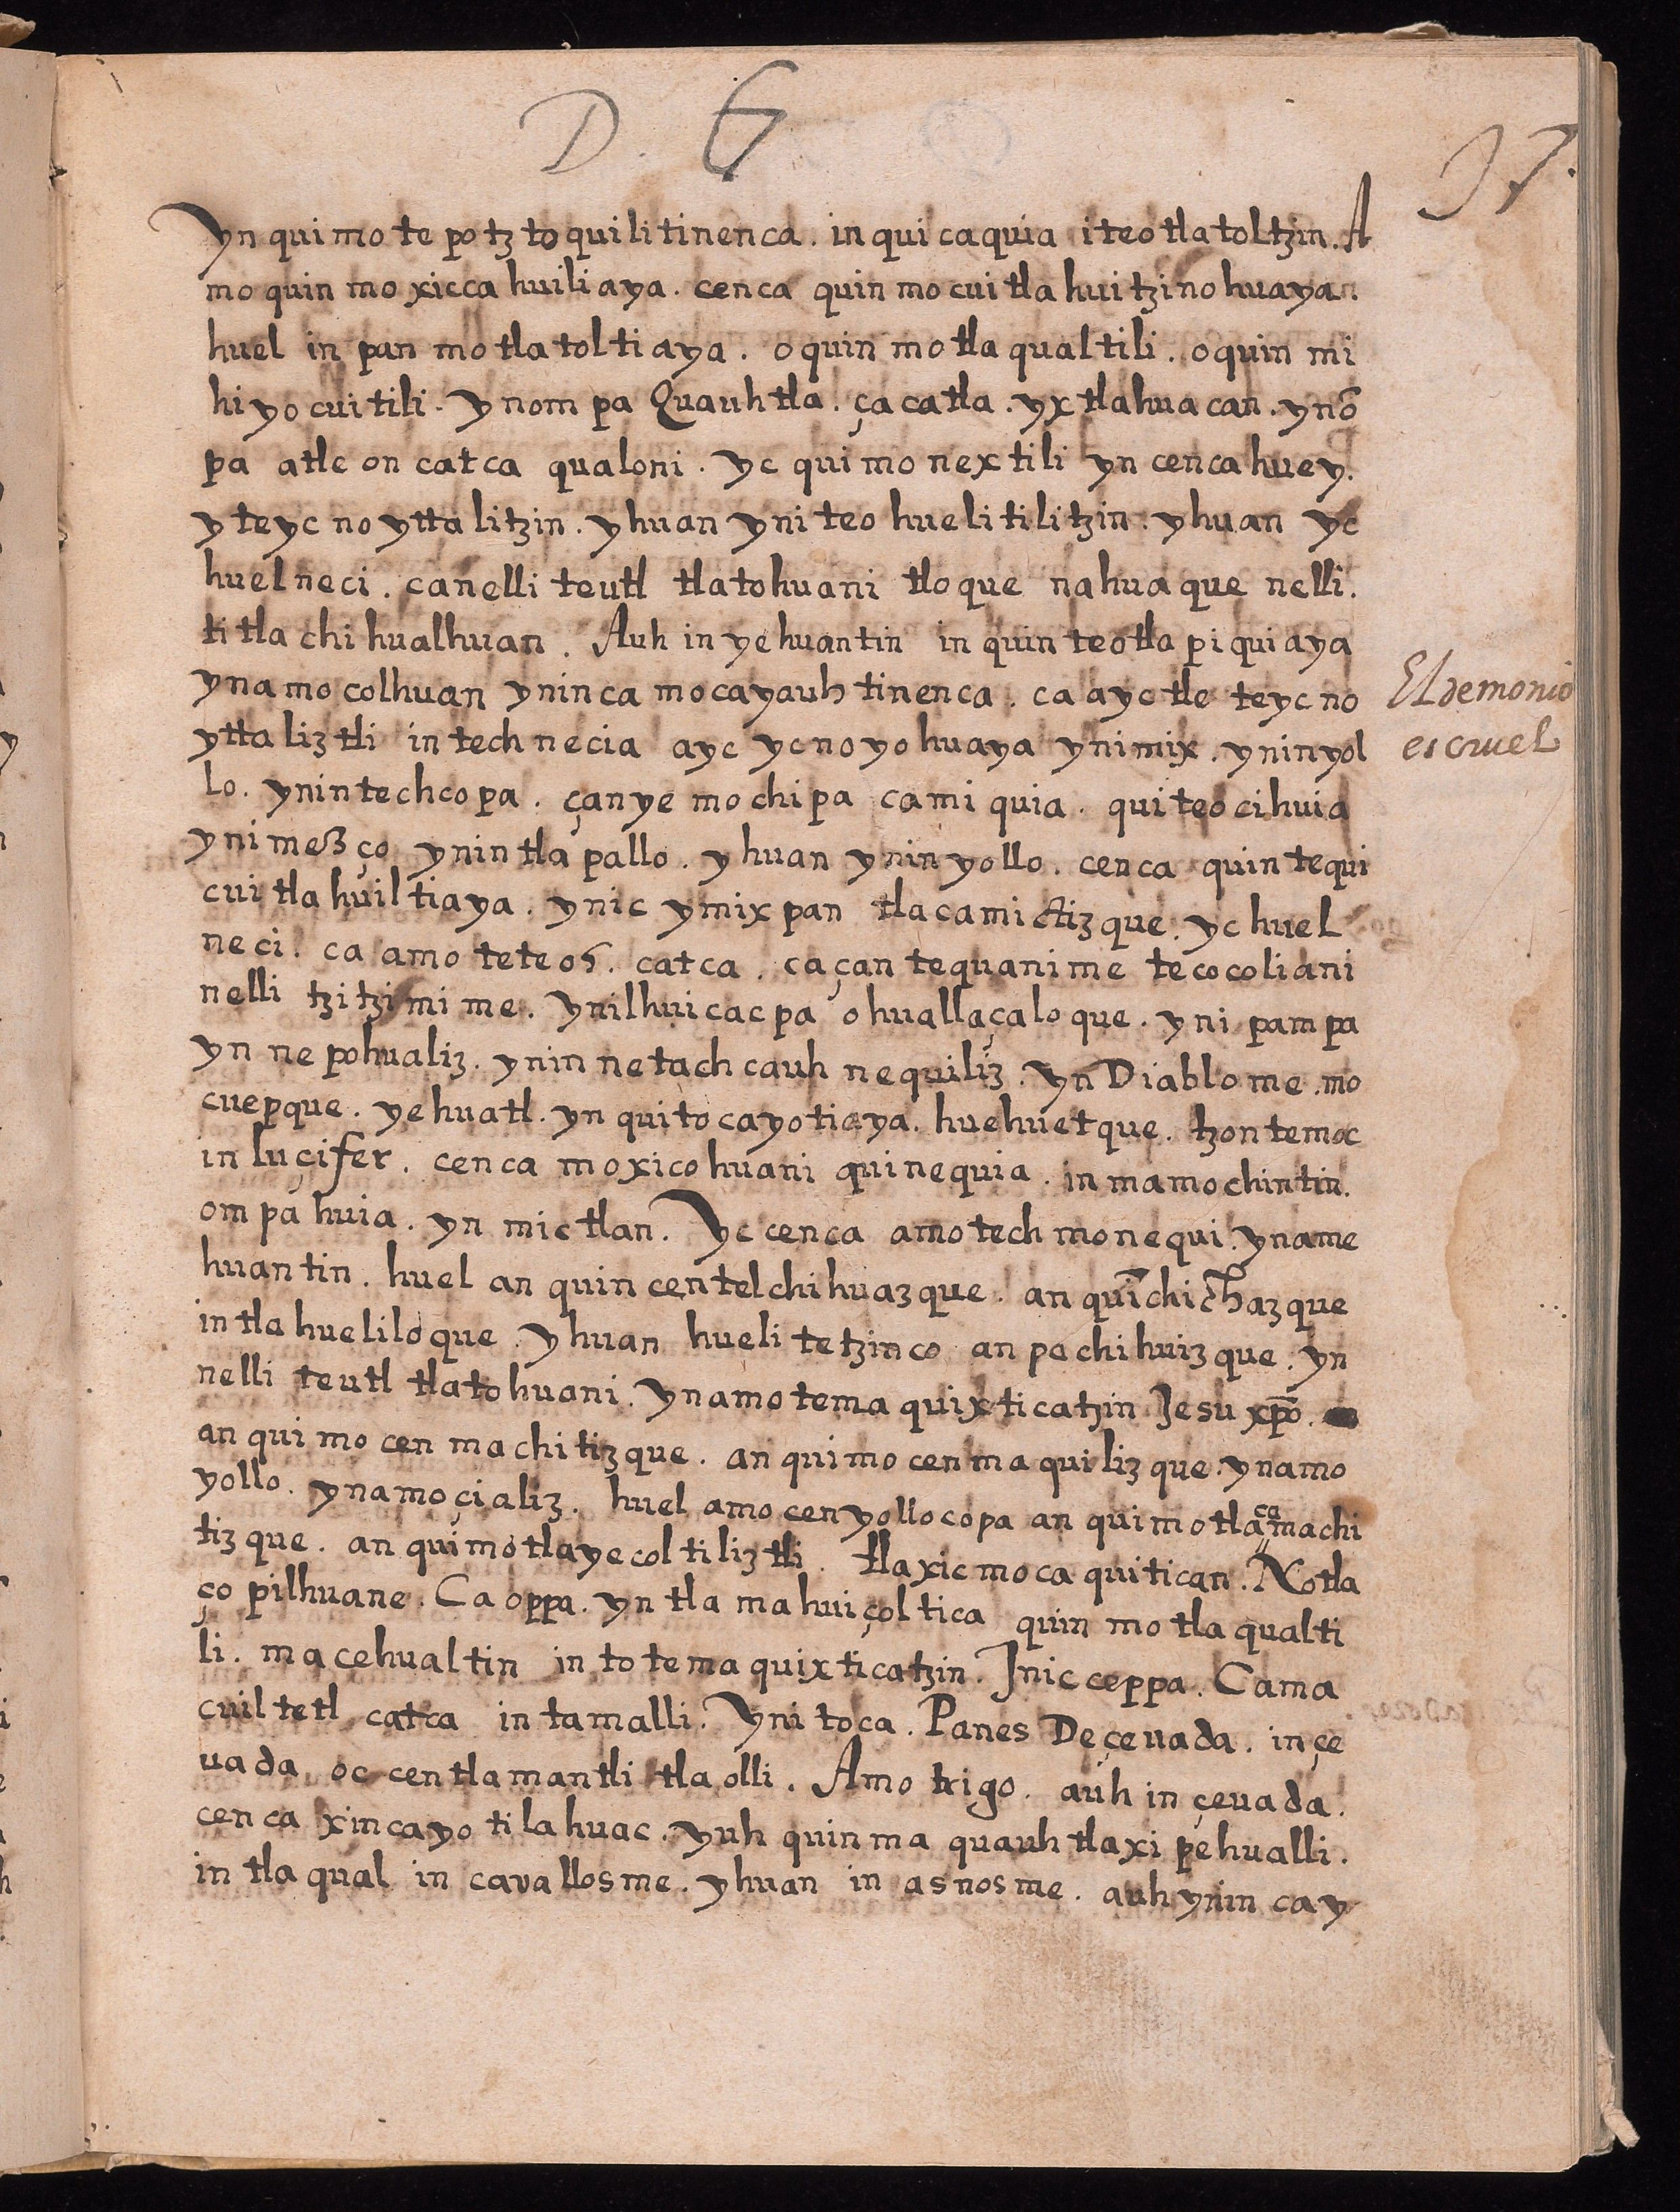 D. G
37.
yn quimo te potz to quilitinenca. in qui caquia iteotlatoltzin. A
mo quin mo xicca huiliaya. cenca quin mo cui tla hui tzino huaya.
huel in pan mo tla tol ti aya. o quin mo tla qual tili. o quin mi
hi yo cui tili. ynom pa Quauh tla. ça ca tla. yx tla hua can. ynō
pa atle on cat ca qualoni. yc qui mo nex tili yn cenca huey.
y te yc no ytta litzin. yhuan yni teo hueli tilitzin. yhuan yc
huel neci. ca nelli teutl tlatohuani tloque nahuaque nelli.
ti tla chi hualhuan. Auh in ye huantin in quin teo tla pi qui aya
ynamo colhuan ynin ca mo cayauh tinenca. ca ayc tle teyc no
ytta liz tli in tech necia ayc yc no yo huaya yn imix. ynin yol
lo. ynin techcopa. çan ye mochipa ca mi quia. qui teo cihuia
yn imezço ynin tla pallo. yhuan ynin yollo. cenca quin tequi
cui tla huil tiaya. ynic ymix pan tla camictiz que. yc huel
neci. ca amo teteos. catca. ca çan tequanime te cocoliani
nelli tzitzimi me. ynilhuicac pa o huallaçalo que. yni pam pa
yn ne pohualiz. ynin netach cauh nequiliz. yn Diablo me. mo
cuepque. ye huatl. yn qui to cayo tiaya. huehuet que. tzon temoc
in luçifer. cenca moxico huani quinequia. in mamochintin.
om pa huia. yn mictlan. Yc cenca amo tech monequi. yname
huan tin. huel an quin cen telchi huaz que. an quīchichaz que
in tla huelilo que. yhuan hueli te tzinco an pachi huiz que. yn
nelli teutl tlato huani. ynamo tema quix ti catzin Jesu xp̄o.
an qui mo cen ma chi tiz que. an qui mo cen ma quiliz que. ynamo
yollo. ynamo çializ. huel amo cen yollo copa an qui mo tlacamachi
tiz que. an qui mo tlaye col ti liz tli. tla xic mo ca qui tican. Notla
ço pilhuane. Ca oppa. yn tla ma hui çol tica quin mo tla qual ti
li. ma cehual tin in to tema quix ti catzin. Jnic ceppa. Ca ma
cuil tetl catca in tamalli. Yni toca. Panes De çeuada. in çe
uada oc cen tla mantli tla olli. Amo trigo. auh in çeuada.
cenca xincayo tilahuac. yuh quin ma quauh tlaxi pehualli.
in tla qual in cavallosme. yhuan in asnosme. auh ynin cay
El demonio
es cruel